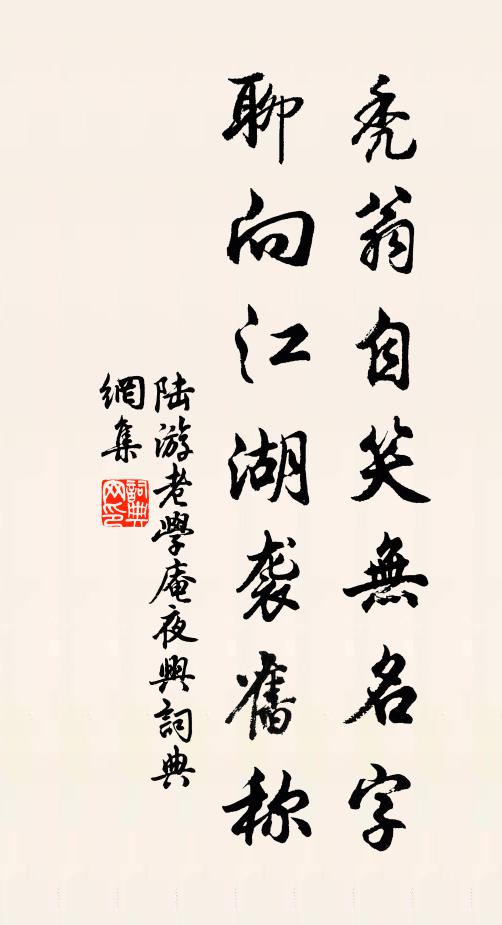 秃翁自笑無名字
聊向江湖袭舊称
陆游老學庵夜興詞典
網集
詞典
网印